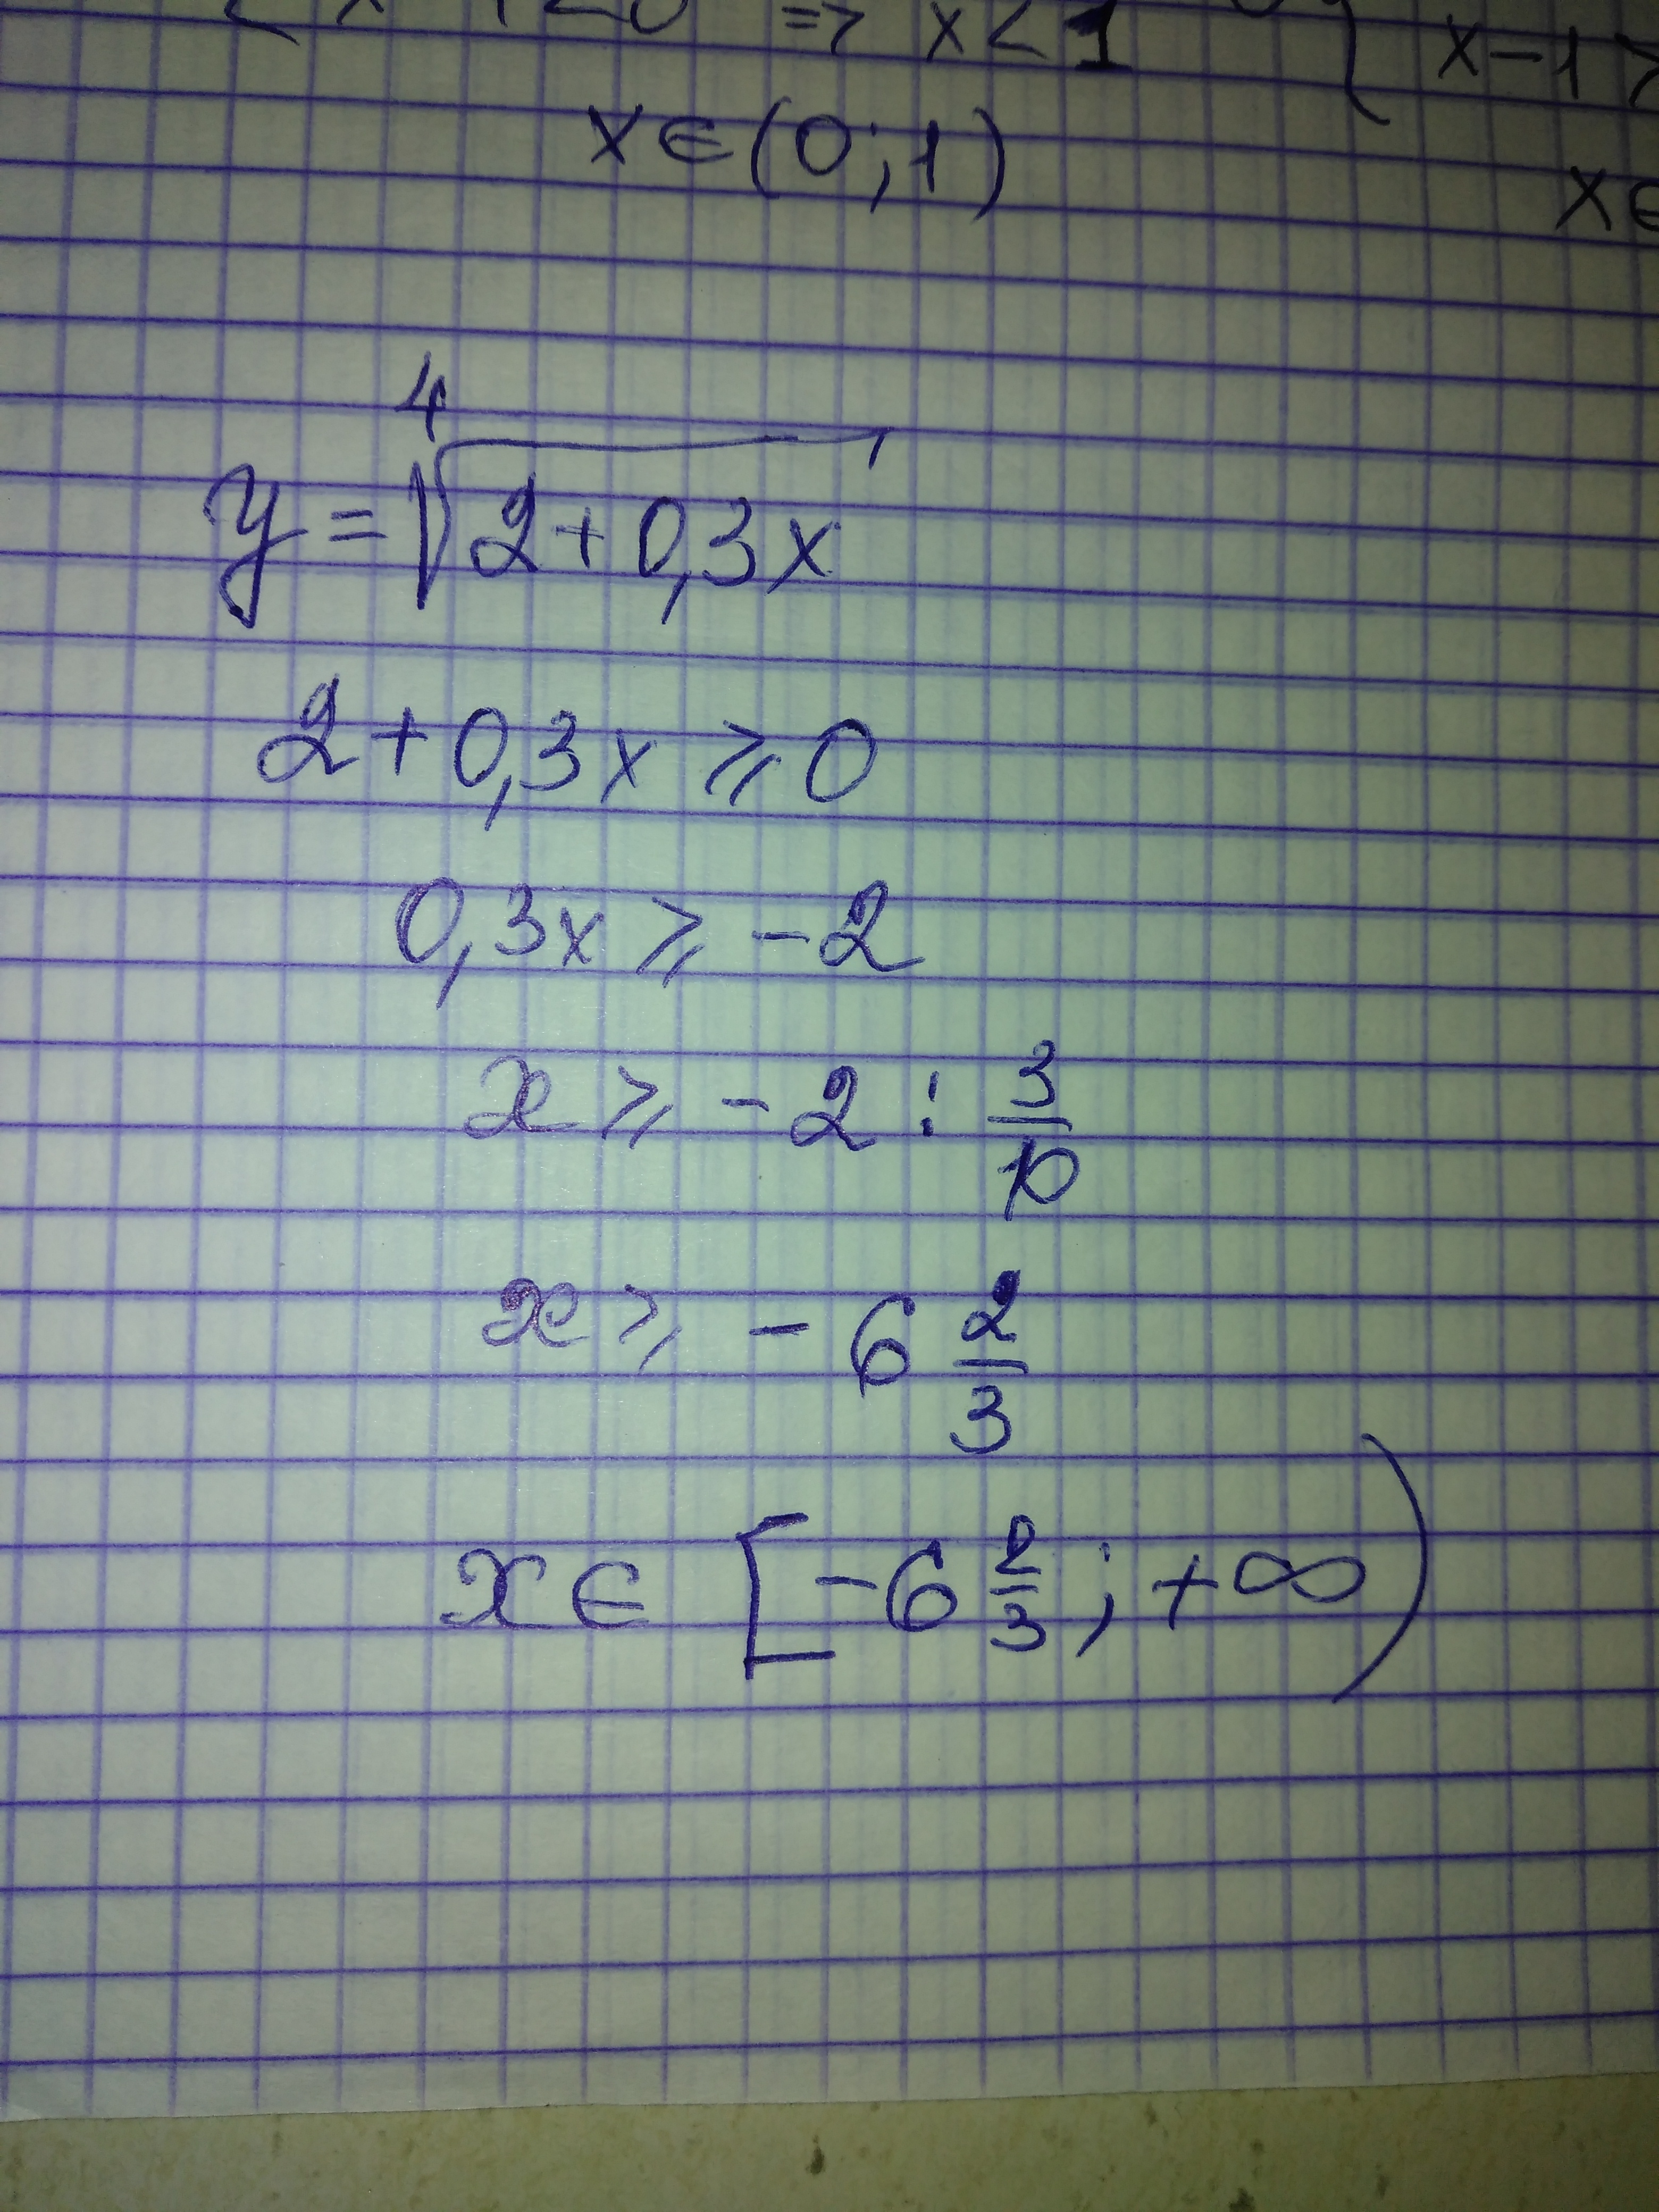 => x < 1
x - 1
x ∈ (0; 1)
x ∈
y = ⁴√(2 + 0,3x)
2 + 0,3x ⩾ 0
0,3x ⩾ -2
x ⩾ -2 : 3/10
x ⩾ -6 2/3
x ∈ [-6 2/3; +∞)